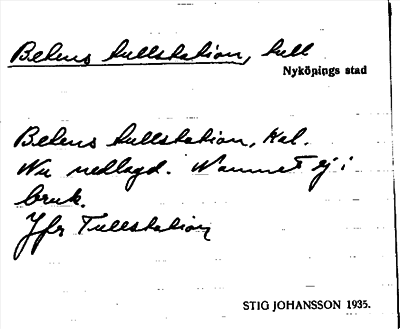 Betens tullstation, tull
Nyköpings stad
Betens tullstation, kal.
Nu nedlagd. Namnet ej i
bruk.
Jfr Tullstation
STIG JOHANSSON 1935.